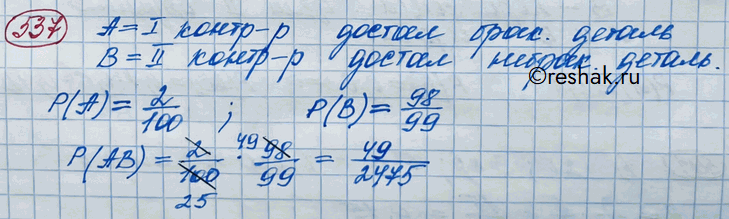 537 A = I контр-р достал брак. деталь
B = II контр-р достал небрак. деталь.
©reshak.ru
P(A) = 2/100 ; P(B) = 98/99
P(AB) = 2/100 25 · 49 98/99 = 49/2475